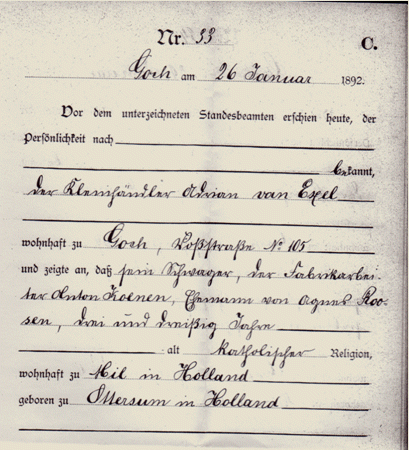 Nr. 33 C.
Goch am 26 Januar 1892.
Vor dem unterzeichneten Standesbeamten erschien heute, der
Persönlichkeit nach
bekannt,
der Kleinhändler Adrian van Expel
wohnhaft zu Goch, Voßstraße No 105
und zeigte an, daß sein Schwager, der Fabrikarbei-
ter Anton Koenen, Ehemann von Agnes Roo-
sen, drei und dreißig Jahre
alt katholischer Religion,
wohnhaft zu Mil in Holland
geboren zu Ottersum in Holland